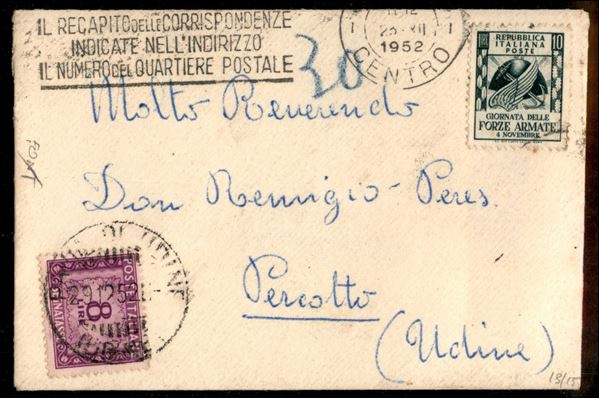 IL RECAPITO DELLE CORRISPONDENZE
INDICATE NELL'INDIRIZZO
IL NUMERO DEL QUARTIERE POSTALE
1952
CENTRO
30
10
REPUBBLICA
ITALIANA
POSTE
GIORNATA DELLE
FORZE ARMATE
4 NOVEMBRE
Molto Reverendo
Don Remigio Peres.
Percotto
(Udine)
8
LIRE